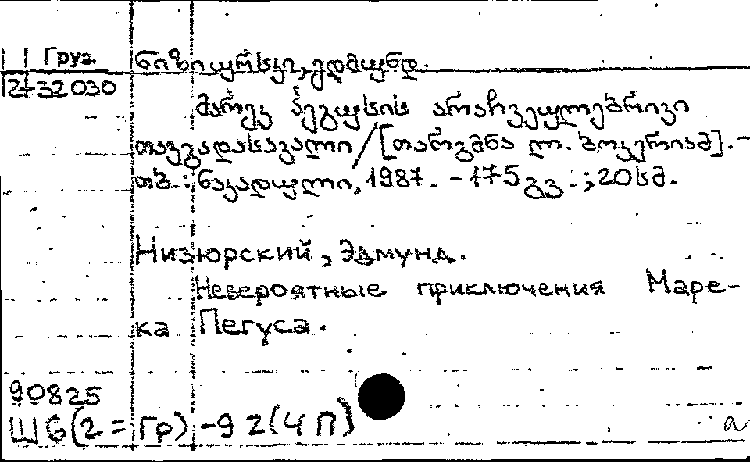 Груз. ნიზიურსკი, ედმუნდ.
2-32030
მარეკ პეგუსის არაჩვეულებრივი
თავგადასავალი / [თარგმნა ლ. ბოკერიამ]. –
თბ. : ნაკადული, 1987. – 175 გვ. ; 20 სმ.
Низюрский, Эдмунд.
Невероятные приключения Маре-
ка Пегуса.
90825
Ш6(2=Гр)-92(4П)
а